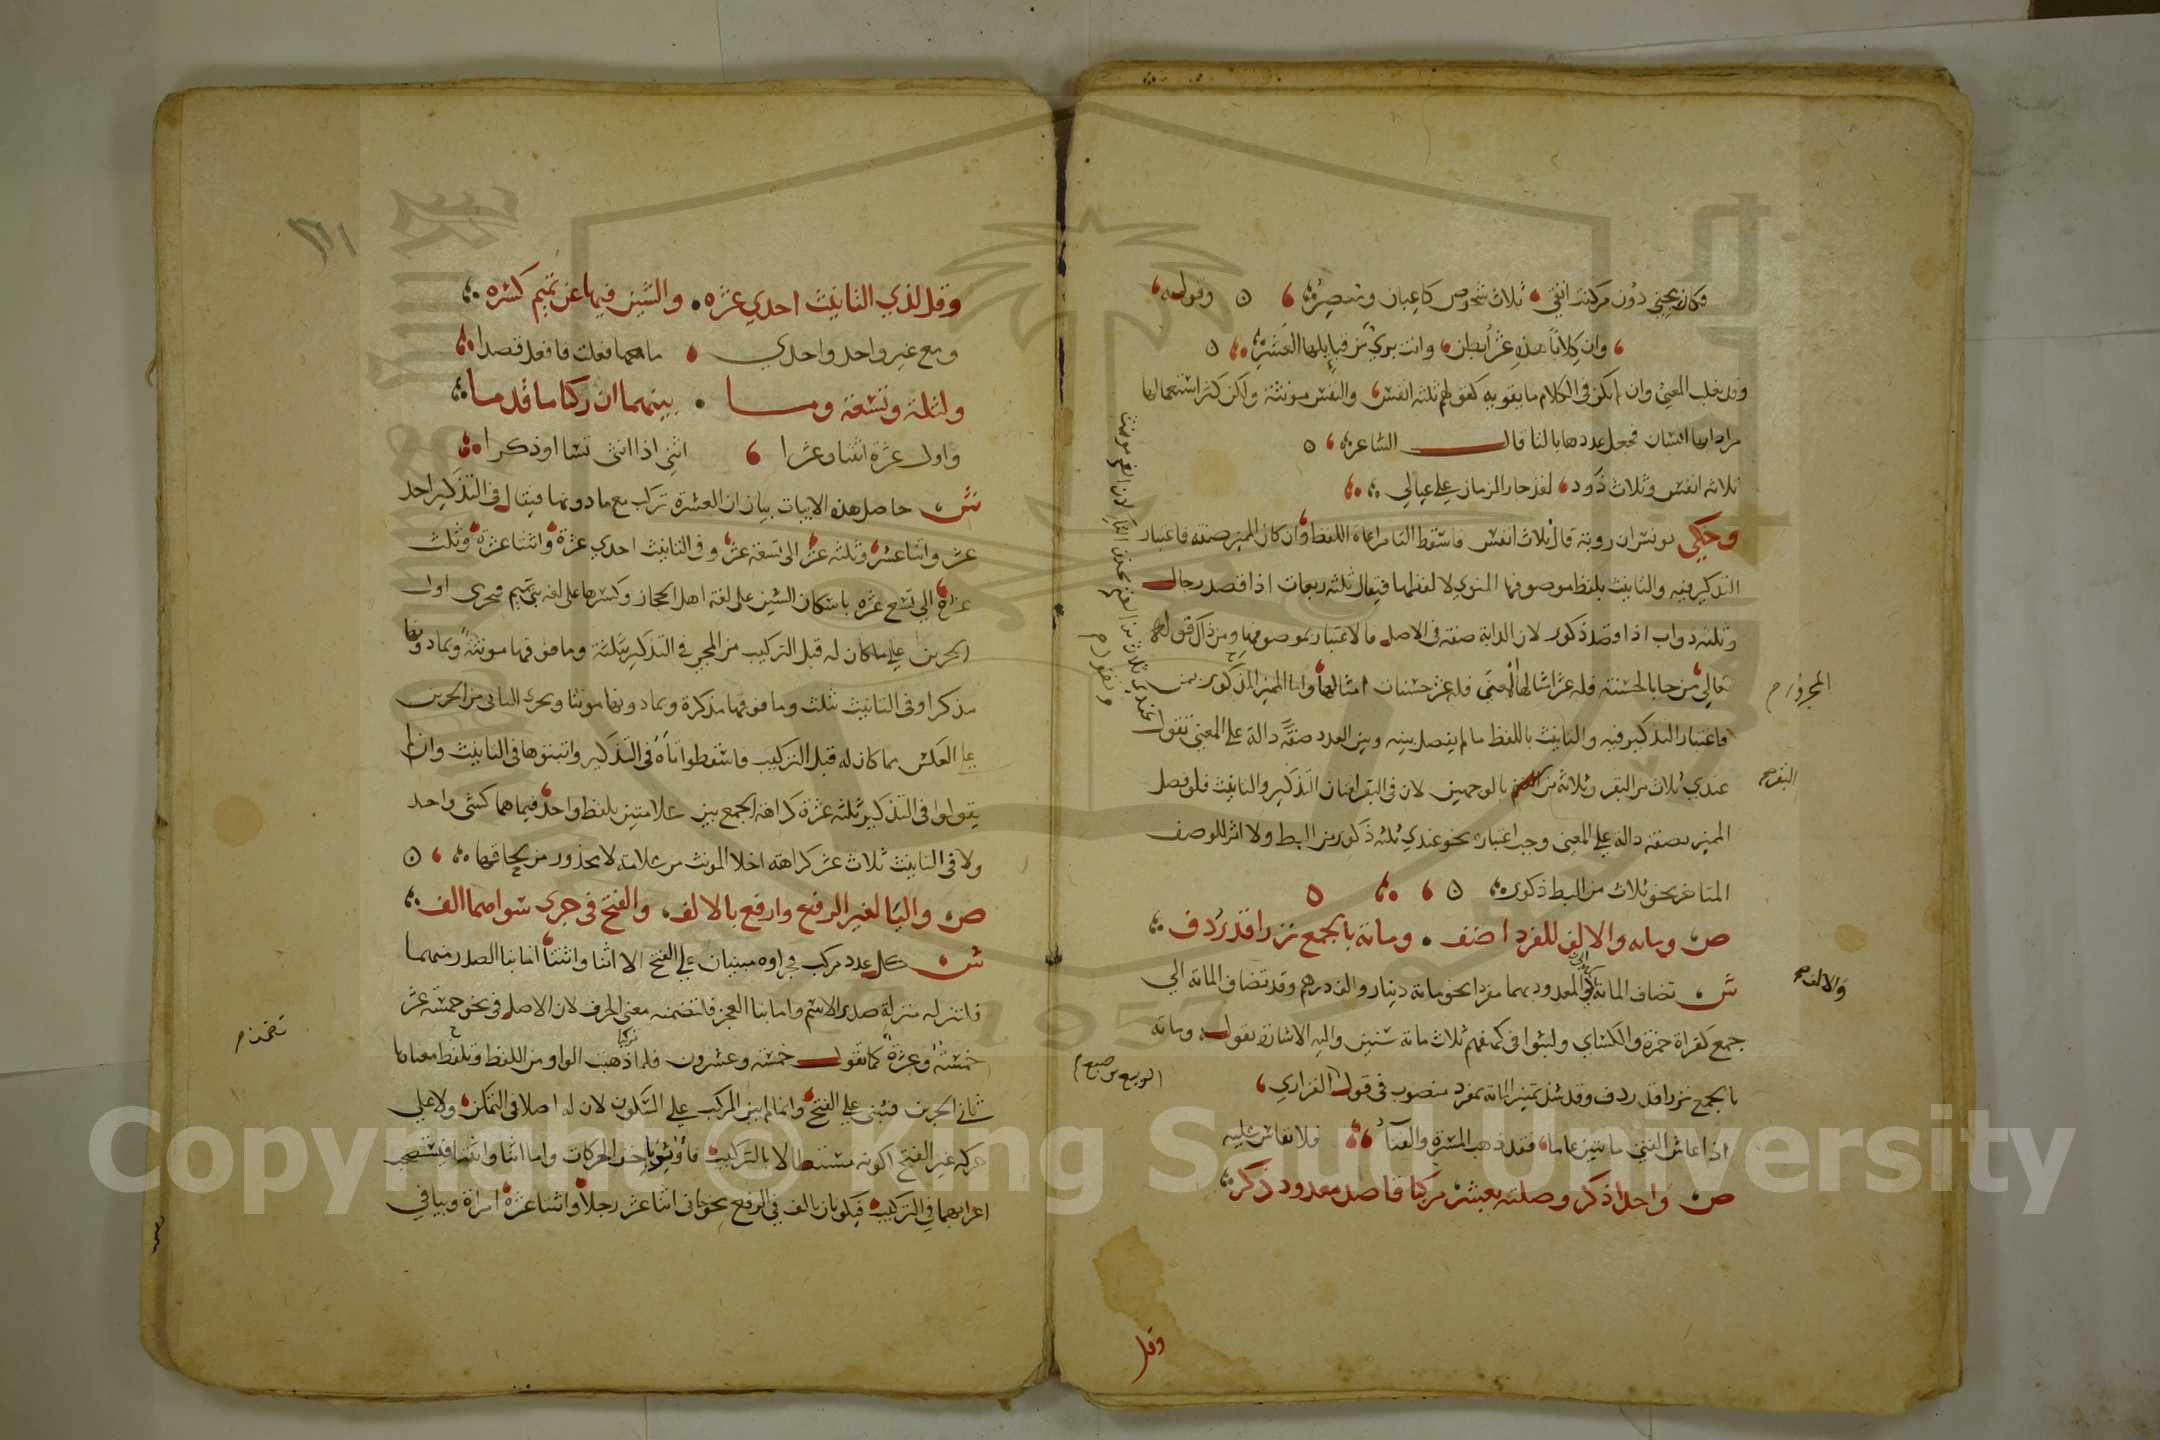 فكان مجني دون من كنت اتقي ثلاث شخوص كاعبان ومعصر وقوله
وان كلابا هذه عشر ابطن وانت بري من قبايلها العشر
وقد يغلب المعنى وان لم يكن في الكلام ما يقويه كقولهم ثلثة انفس والنفس مونثة ولكن كثر استعمالها
مرادا بها انسان فجعل عددها بالتا قال الشاعر
ثلاثة انفس وثلاث ذود لقد جار الزمان علي عيالي
وحكي يونس ان روبة قال ثلاث انفس فاسقط التا مراعاة اللفظ وان كان المميز صفة فاعتبار
التذكير فيه والتانيث بلفظ موصوفها المنوي لا لفظها فيقال ثلثة ربعات اذا قصد رجال
وثلثة دواب اذا قصد ذكور لان الدابة صفة في الاصل فالاعتبار بموصوفها ومن ذلك قوله
تعالي من جا بالحسنة فله عشر امثالها المعنى فله عشر حسنات امثالها واما المميز المذكور بمن
فاعتبار التذكير فيه والتانيث باللفظ ما لم يفصل بينه وبين العدد صفة دالة علي المعنى تقول
عندي ثلاث من البقر وثلاثة من بالوجهين لان في البقر لغتان التذكير والتانيث فلو فصل
المميز بصفة دالة علي المعنى وجب اعتباره نحو عندي ثلثة ذكور من البط ولا اثر للوصف
المتاخر نحو ثلاث من البط ذكور
ص وماىه والالف للفرد اضف ومائة بالجمع نزرا قد ردف
ش تضاف المائة والالف الي المعدود بهما مفردا نحو مائة دينار والف درهم وقد تضاف المائة الي
جمع كقراة حمزة والكسائي ولبثوا في كهفهم ثلاث مائة سنين واليه الاشارة بقوله ومائة
بالجمع نزرا قد ردف وقد شذ تمييز المائة بمفرد منصوب في قول الفزاري
اذا عاش الفتى مائتين عاما فقد ذهب المسرة والفتاء فلا يقاس عليه
ص واحد اذكر وصلنه بعشر مركبا قاصد معدود ذكر
وقل
البقر صح
والالف صح
الربيع بن ضبع
وقل لدي التانيث احدي عشره والشين فيها عن تميم كسره
ومع غير واحد واحدي ما معهما فعلت فافعل قصدا
ولثلثة وتسعة وما بينهما ان ركبا ما قدما
واول عشرة اثنتا وعشرا اثني اذا انثى تشا او ذكرا
ش حاصل هذه الابيات بيان ان العشرة تركب مع ما دونها فيقال في التذكير احد
عشر واثنا عشر وثلثة عشر الى تسعة عشر وفي التانيث احدي عشرة واثنتا عشرة وثلث
عشرة الي تسع عشره باسكان الشين على لغة اهل الحجاز وكسرها على لغة بني تميم فيجري اول
الجزين علي ما كان له قبل التركيب من المجي في التذكير بثلثة وما فوقها مونثة وبما دونها
مذكرا وفي التانيث بثلث وما فوقها مذكرة وبما دونها مونثا ويجري الثاني من الجزين
على العكس بما كان له قبل التركيب فاسقطوا تاه في التذكير واثبتوها في التانيث وان لم
يقولوا في التذكير ثلثة عشرة كراهة الجمع بين علامتين بلفظ واحد فيما هما كشي واحد
ولا في التانيث ثلاث عشر كراهة اخلا المونث من علامة لا محذور من لحاقها
ص واليا لغير الرفع وارفع بالالف والفتح في جزي سواهما الف
ش كل عدد مركب فجزاوه مبنيان علي الفتح الا اثنا واثنتا اما بنا الصدر منهما
فلتنزله منزلة صدر الاسم واما بنا العجز فلتضمنه معنى الحرف لان الاصل في نحو خمسة عشر
خمسة وعشرة كما تقول خمسة وعشرون فلما ذهب الواو من اللفظ وتلفظ معناها
ثاني الجزين فبني علي الفتح وانما لم يبن المركب علي السكون لان له اصلا في التمكن ولا علي
حركة غير الفتح لكونه مستطالا بالتركيب فاوثر باخف الحركات واما اثنا واثنتا فيستصحب
اعرابهما في التركيب فيكونان بالف في الرفع نحو جاني اثنا عشر رجلا واثنتا عشرة امراة وبيا في